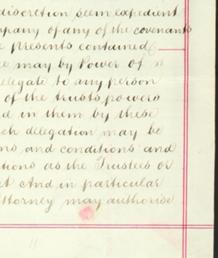 discretion seem expedient
pany of any of the covenants
e presents contained
e may by Power of
elegate to any person
of the trusts powers
d in them by these
ch delegation may be
ns and conditions and
tions as the Trustees or
t And in particular
ttorney may authorise